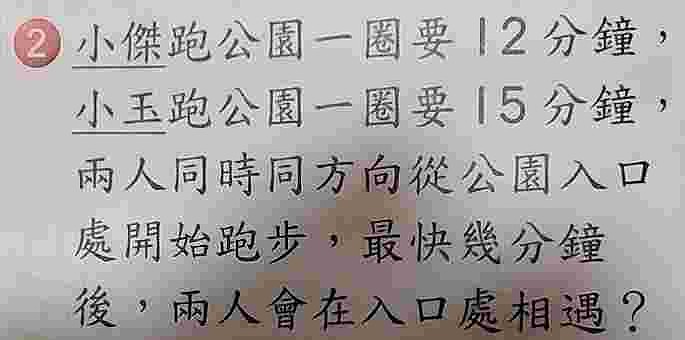 2 小傑跑公園一圈要12分鐘，
小玉跑公園一圈要15分鐘，
兩人同時同方向從公園入口
處開始跑步，最快幾分鐘
後，兩人會在入口處相遇？